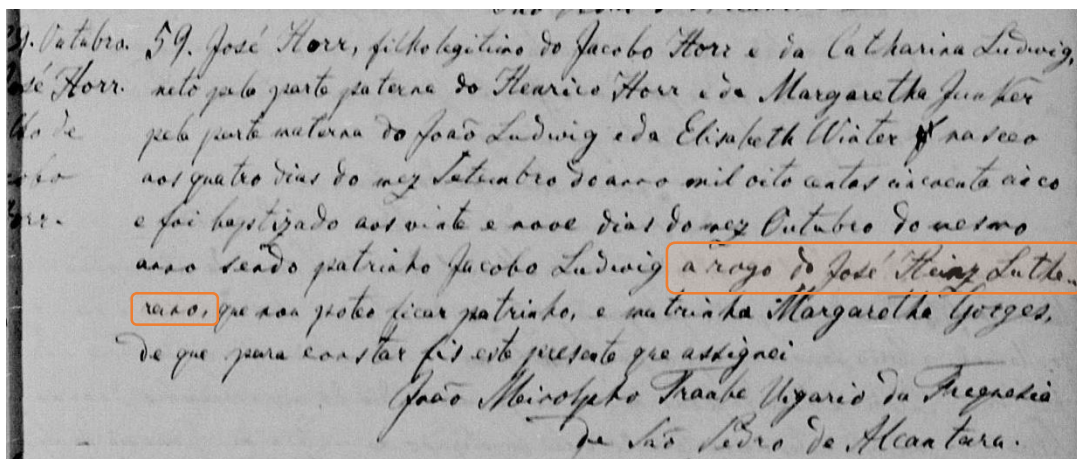 29. Outubro. 59. José Horr, filho legitimo do Jacobo Horr e da Catharina Ludwig,
José Horr. neto pela parte paterna do Henrico Horr e da Margaretha Junker
filho de pela parte materna do João Ludwig e da Elisabeth Winter nasceo
Jacobo aos quatro dias do mez Setembro do anno mil oito centos cincoenta cinco
Horr. e foi baptizado aos vinte e nove dias do mez Outubro do mesmo
anno sendo patrinho Jacobo Ludwig a rogo do José Heinz Luthe-
rano, que non poteo ficar patrinho, e matrinha Margaretha Gorges,
de que para constar fis este presente que assignei
João Meirolpho Traube Vigario da Freguesia
de São Pedro de Alcantara.